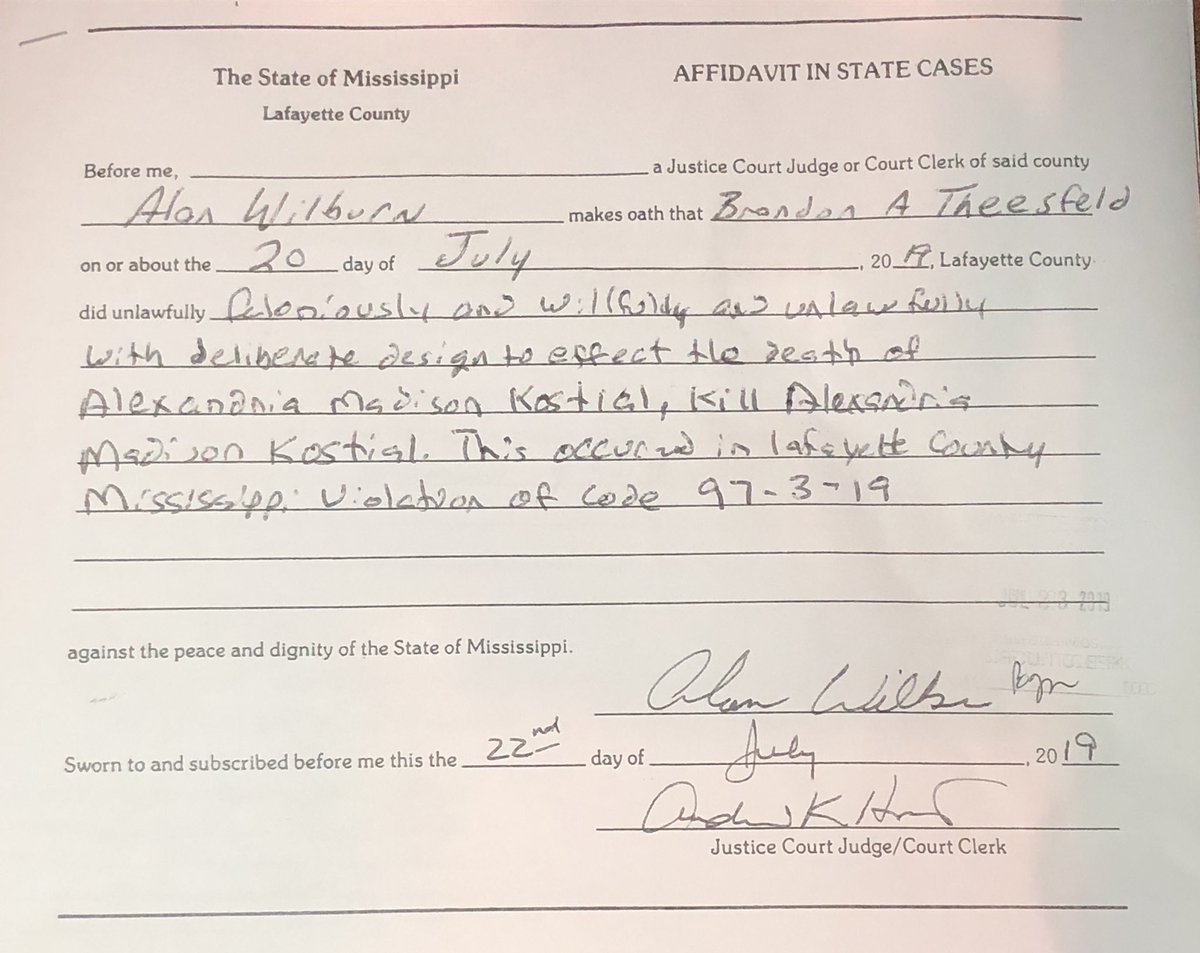 The State of Mississippi
Lafayette County
AFFIDAVIT IN STATE CASES
Before me, a Justice Court Judge or Court Clerk of said county
Alan Wilburn makes oath that Brandon A Theesfeld
on or about the 20 day of July, 2019, Lafayette County
did unlawfully feloniously and willfully and unlawfully
with deliberate design to effect the death of
Alexandria Madison Kostial, Kill Alexandria
Madison Kostial. This occured in lafayette County
Mississippi Violation of Code 97-3-19
JUL 23 2019
against the peace and dignity of the State of Mississippi.
Alan Wilbur
Sworn to and subscribed before me this the 22nd day of July, 2019
Justice Court Judge/Court Clerk